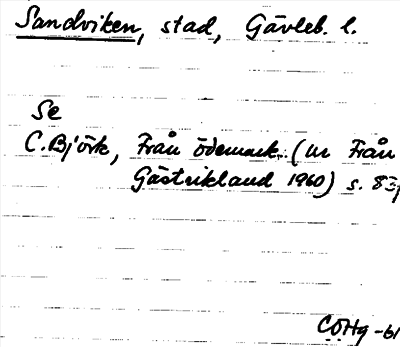 Sandviken, stad, Gävleb. l.
Se
C. Björk, Från ödemark. (ur Från
Gästrikland 1960) s. 85
CÖHg -61